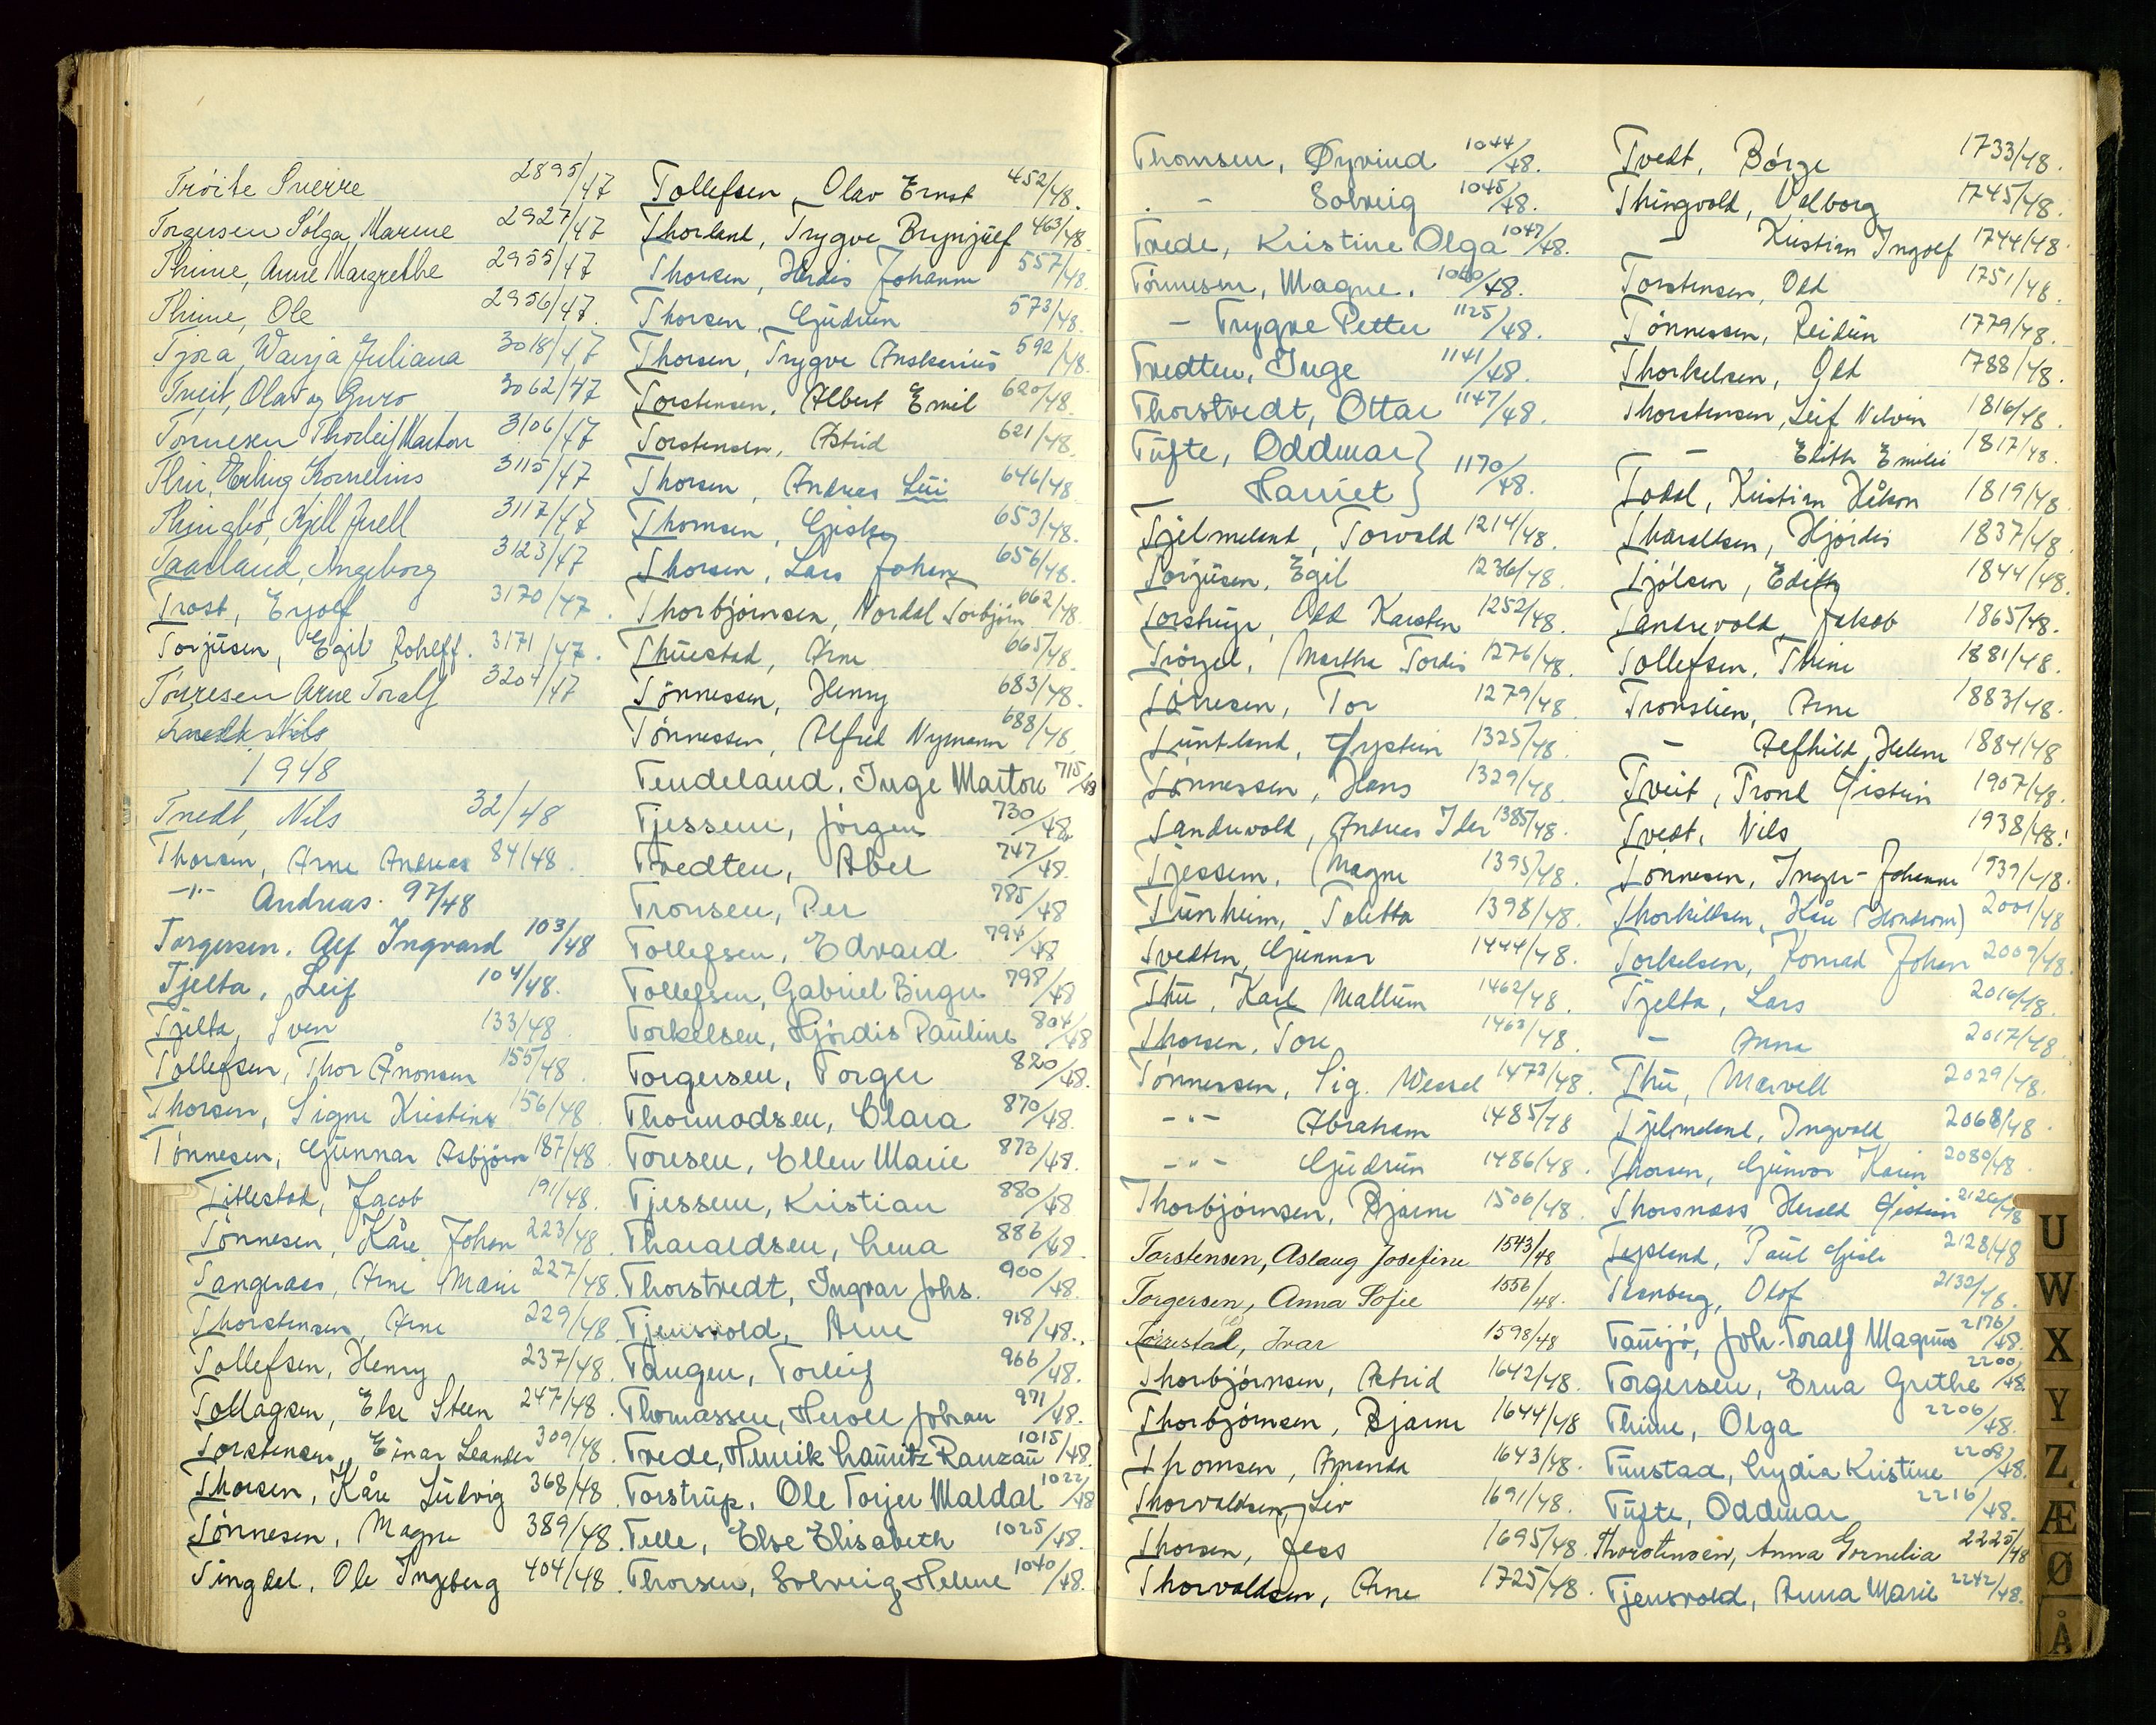 Tröite Sverre 2895/47
Torgersen Solga, Marene 2927/47
Thime, Anne Margrethe 2955/47
Thime, Ole 2956/47
Tjora, Juliana 3018/47
Tveit, Olav og Guro 3062/47
Tönnesen Thorleif Marton 3106/47
Thu, Erling Kornelius 3115/47
Thingbö, Kjell Juell 3117/47
Taarland, Ingeborg 3123/47
Trost, Eyolf 3170/47
Torjusen, Egil Rohlff. 3171/47.
Törresen Arne Toralf 3204/47
Tvedt Nils
1948
Tvedt, Nils 32/48
Thorsen, Arne Andreas 84/48.
-"- Andreas. 97/48
Torgersen. Alf Ingvard 103/48
Tjelta, Leif 104/48.
Tjelta, Sven 133/48.
Tollefsen, Thor Ånonsen 155/48
Thorsen, Signe Kristine 156/48.
Tönnesen, Gunnar Asbjörn 187/48
Titlestad, Jacob 191/48.
Tönnesen, Kåre Johan 223/48
Tangeraas, Arne Marie 227/48.
Thorstensen, Arne 229/48
Tollefsen, Henry 237/48.
Tollagsen, Else Steen 247/48.
Torstensen, Einar Leander 309/48.
Thorsen, Kåre Ludvig 368/48.
Tönnesen, Magne 389/48.
Tingdal, Ole Ingeberg 404/48.
Tollefsen, Olav Ernst 452/48.
Thorland, Trygve Brynjulf 463/48.
Thorsen, Herdis Johanne 557/48.
Thorsen, Gudrun 573/48.
Thorsen, Trygve Anskerius 592/48.
Torstensen, Albert Emil 620/48.
Torstensen, Astrid 621/48.
Thorsen, Andreas Lui 646/48.
Thomsen, Giske 653/48.
Thorsen, Lars Johan 656/48.
Thorbjörnsen, Nordal Torbjörn 662/48.
Thuestad, Arne 665/48.
Tönnessen, Henny 683/48.
Tönnessen, Alfred Nymann 688/48.
Tendeland, Inge Marton 715/48
Tjessem, Jörgen 730/48.
Tvedten, Abel 747/48.
Tronsen, Per 785/48
Tollefsen, Edvard 794/48
Tollefsen, Gabriel Birger 798/48
Torkelsen, Hjördis Pauline 804/48
Torgersen, Torger 820/48.
Thormodsen, Clara 870/48.
Toresen, Ellen Marie 873/48.
Tjessem, Kristian 880/48
Tharaldsen, Lena 886/48
Thorstvedt, Ingvar Johs. 900/48.
Tjensvold, Arne 918/48.
Tangen, Torleif 966/48.
Thomassen, Johan 971/48.
Trede, Henrik Lauritz Ranzau 1015/48.
Torstrup, Ole Torjer Maldal 1022/48
Telle, Else Elisabeth 1025/48.
Thorsen, Solveig Helene 1040/48.
Thomsen, Öyvind 1044/48.
. - Solveig 1045/48.
Trede, Kristine Olga 1047/48.
Tönnesen, Magne. 1060/48.
- Trygve Petter 1125/48.
Tvedten, Inge 1141/48.
Thorstvedt, Ottar 1147/48.
Tufte, Oddmar
Harriet 1170/48.
Tjelmeland, Torvald 1214/48.
Torjusen, Egil 1236/48.
Torstrup, Odd Karsten 1252/48.
Martha Tordis 1276/48.
Törresen, Tor 1279/48.
Tuntland, Öystein 1325/48.
Tönnessen, Hans 1329/48.
Sandevold, Andreas Idar 1385/48.
Tjessem, Magne 1395/48.
Tunheim, Toletta 1398/48.
Tvedten, Gunnar 1444/48.
Thu, Karl Mallum 1462/48.
Thorsen, Tore 1463/48.
Tönnessen, Sig. Wessel 1473/48.
-"- Abraham 1485/48
-"- Gudrun 1486/48.
Thorbjörnsen, Bjarne 1506/48.
Torstensen, Aslaug Josefine 1543/48
Torgersen, Anna Sofie 1556/48.
Tørrestad, Ivar 1598/48
Thorbjörnsen, Astrid 1642/48.
Thorbjörnsen, Bjarne 1644/48
Thomsen, Amanda 1643/48.
Thorvaldsen, Liv 1691/48.
Thorsen, Jess 1695/48.
Thorvaldsen, Arne 1725/48.
Tvedt, Börge 1733/48.
Thingvold, Valborg 1745/48.
- Kristian Ingolf 1744/48
Torstensen, Odd 1751/48.
Tönnessen, Reidun 1779/48.
Thorkelsen, Odd 1788/48.
Thorstensen, Leif Nelvin 1816/48.
- Edith Emilie 1817/48.
Todal, Kristian Håkon 1819/48
Tharaldsen, Hjördis 1837/48.
Tjölsen, Edith 1844/48.
Sandevold, Jakob 1865/48.
Tollefsen, Thine 1881/48.
Tronslien, Arne 1883/48.
- Alfhild Helene 1884/48
Tveit, Trond Öistein 1907/48.
Tvedt, Nils 1938/48.
Tönnesen, Inger-Johanne 1939/48.
Thorkildsen, Kåre 2001/48
Torkelsen, Konrad Johan 2009/48.
Tjelta, Lars 2016/48.
- Anna 2017/48
Thu, Marvell 2029/48.
Tjelmeland, Ingvald 2068/48.
Thorsen, Gunvor Karin 2080/48
Thorsnæss Harald Öistein
Paul Gisle 2128/48
Olof 2132/48.
Tausjö, Joh. Toralf Magnus 2176/48.
Torgersen, Erna Grethe 2200/48.
Thime, Olga 2206/48.
Tunstad, Lydia Kristine 2208/48.
Tufte, Oddmar 2216/48.
Thorstensen, Anna Gornelia 2225/48
Tjensvold, Anna Marie 2242/48.
U
W
X
Y
Z
Æ
Ø
Å